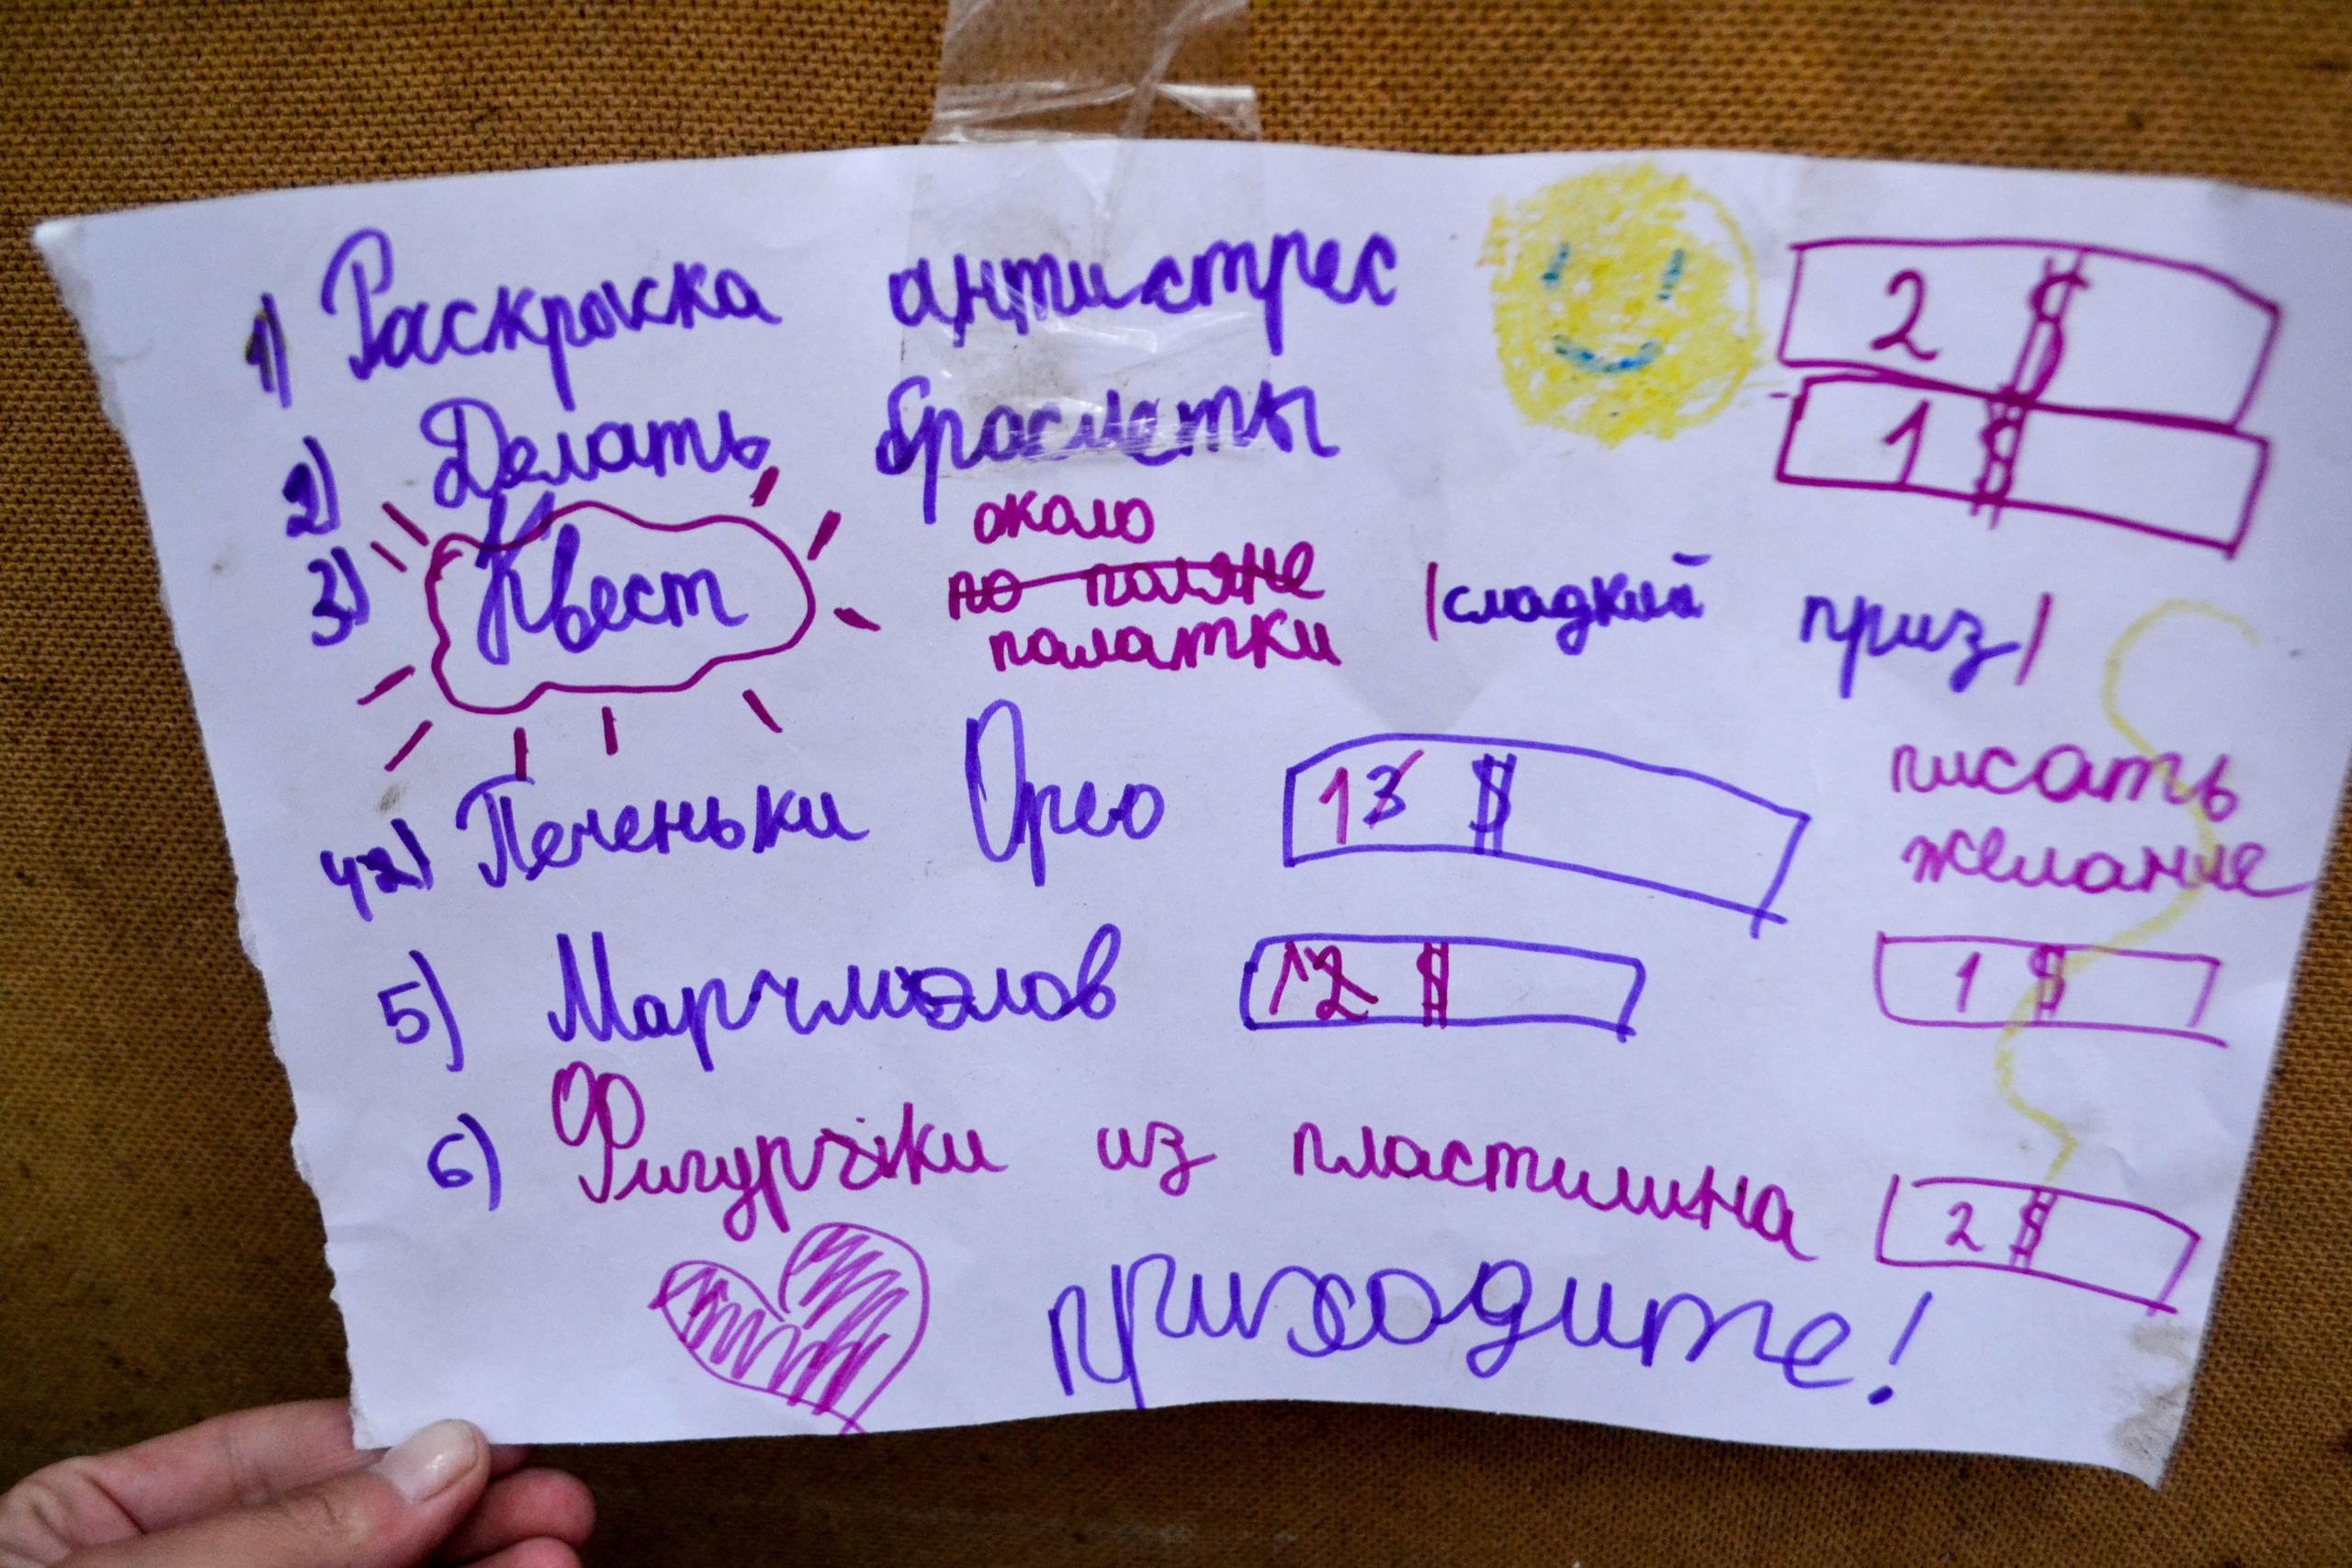 1) Раскраска антистрес 2 $
2) Делать браслеты 1 $
3) Квест около
по поляне
палатки /сладкий приз/
4) Печеньки Орео 1 3 $
писать
желание
1 $
5) Марчмэлов 1 2 $
6) Фигурчики из пластилина 2 $
приходите!